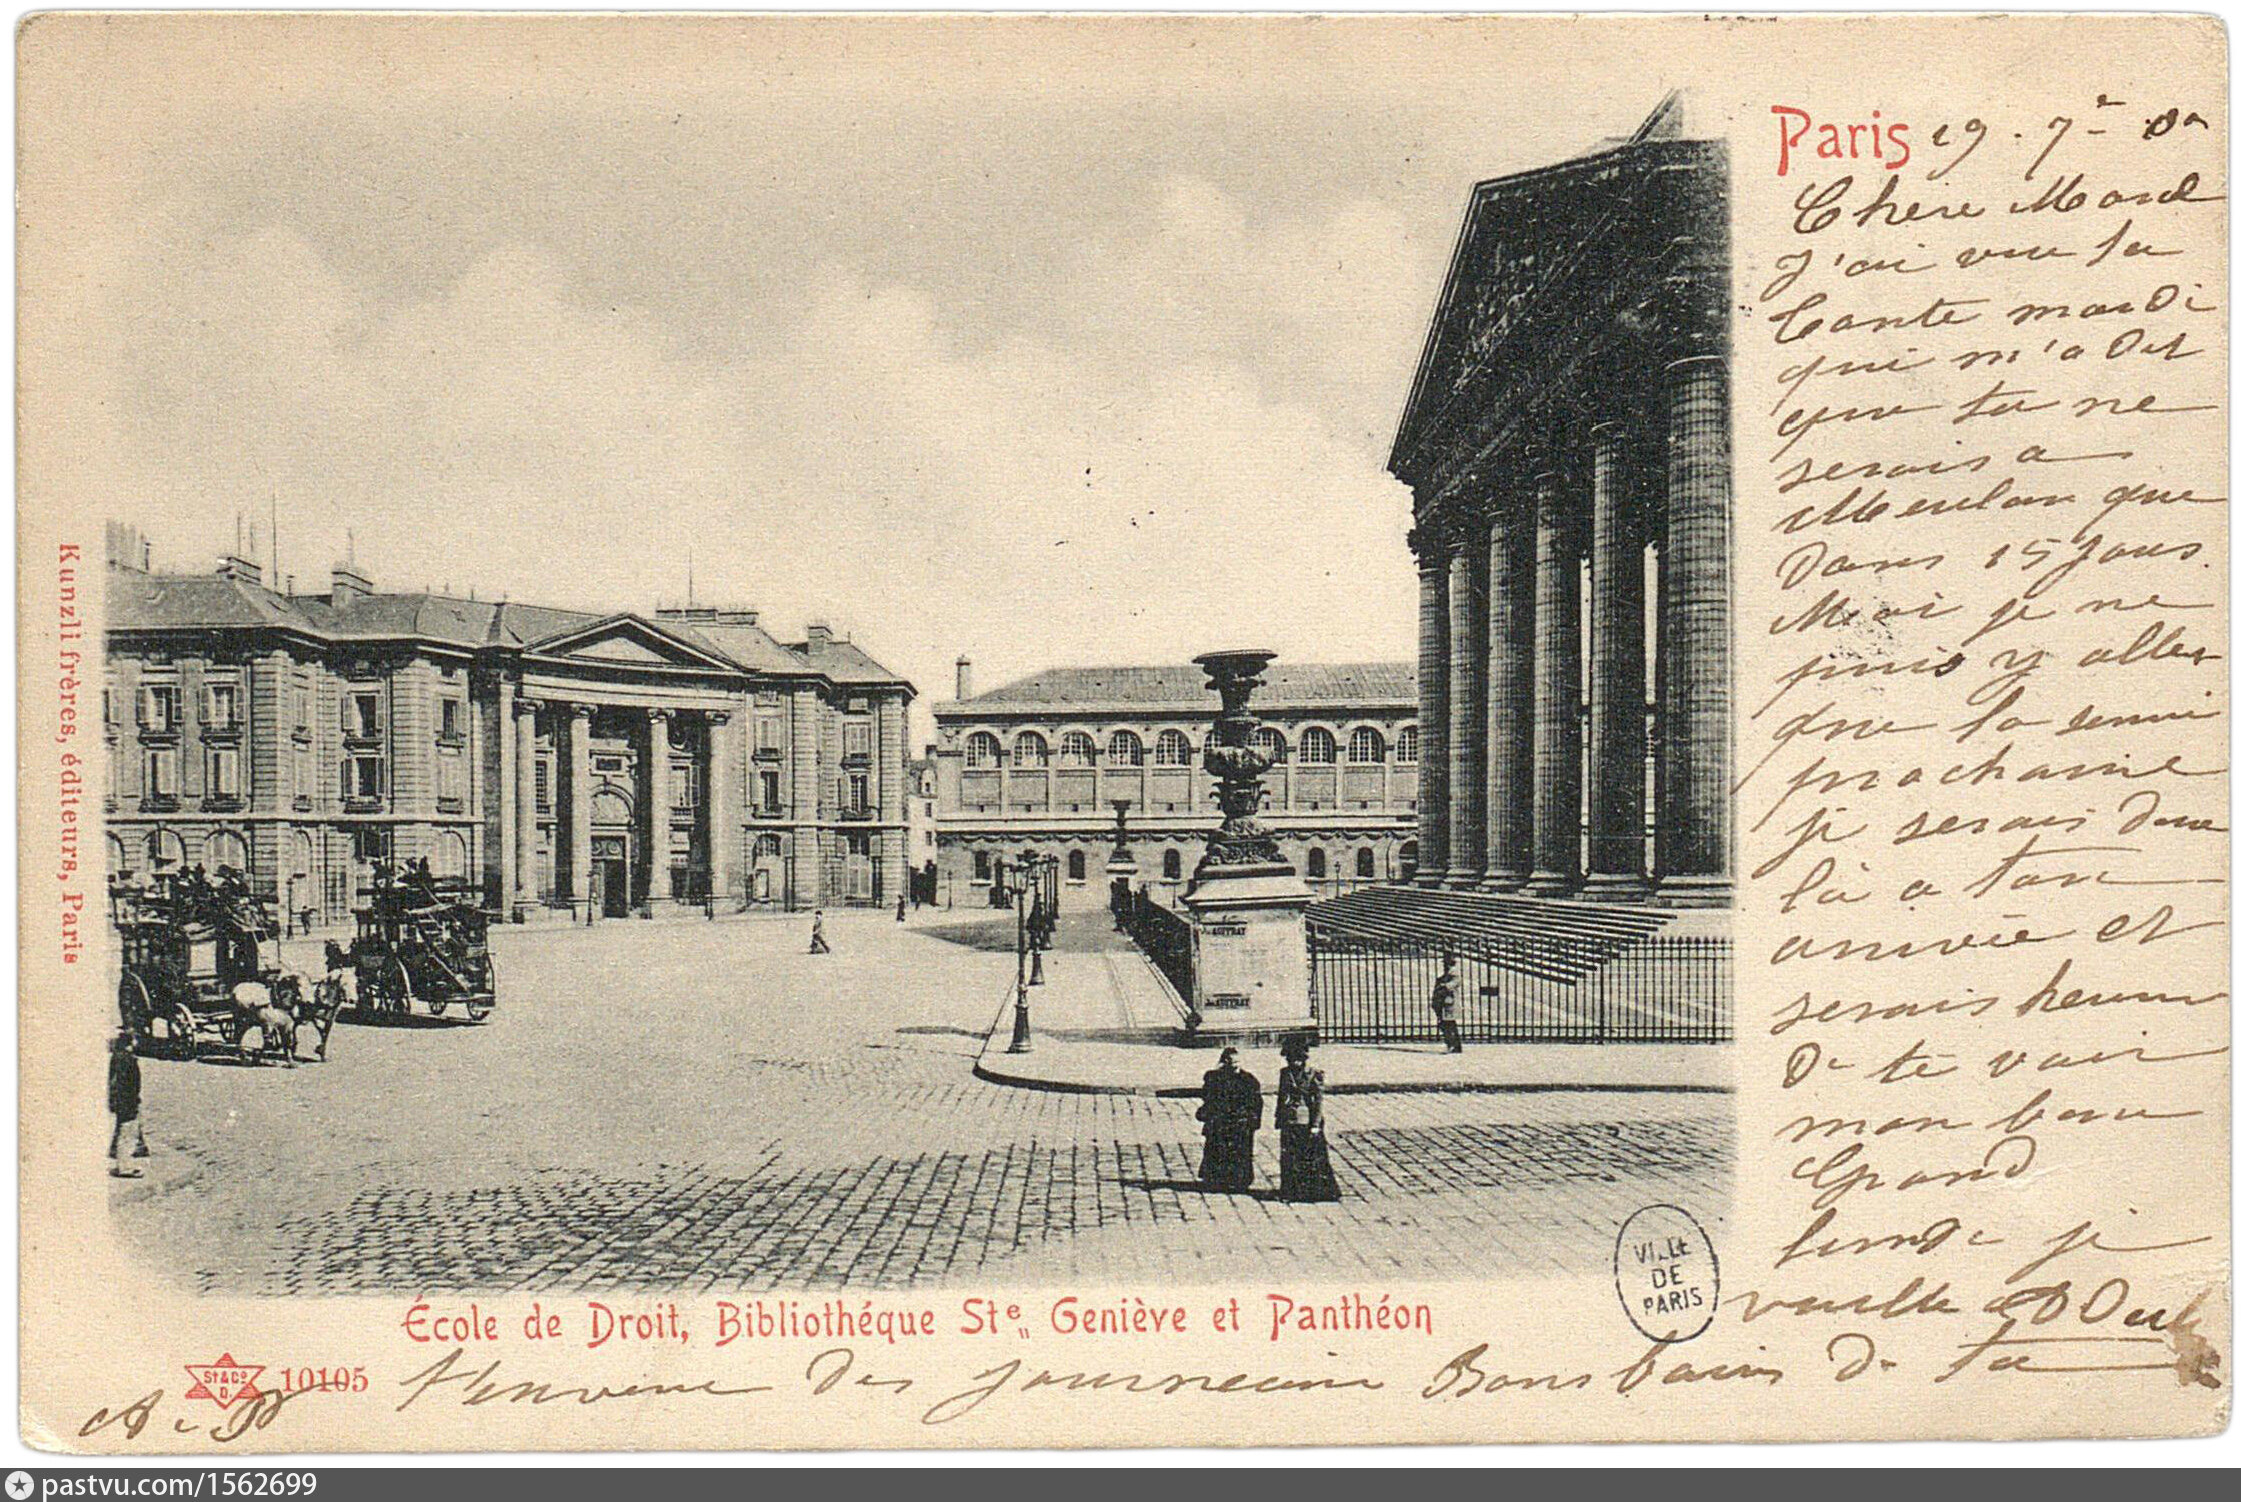 Paris 19 . 7e
Chère Maud
J'ai vu ta
tante mardi
qui m'a dit
que tu ne
serais a
Meulan que
Dans 15 jours.
Moi je ne
puis y aller
que la semai
prochaine
je serais donc
là a ton
arrivée et
serais heureu
De te voir
mon
Grand
je
Bons baisers De ta
Kunzli frères, éditeurs, Paris
AUFFRAY
AUFFRAY
VILLE
DE
PARIS
École de Droit, Bibliothéque Ste„ Geniève et Panthéon
St & Co
D.
10105
Des
pastvu.com/1562699